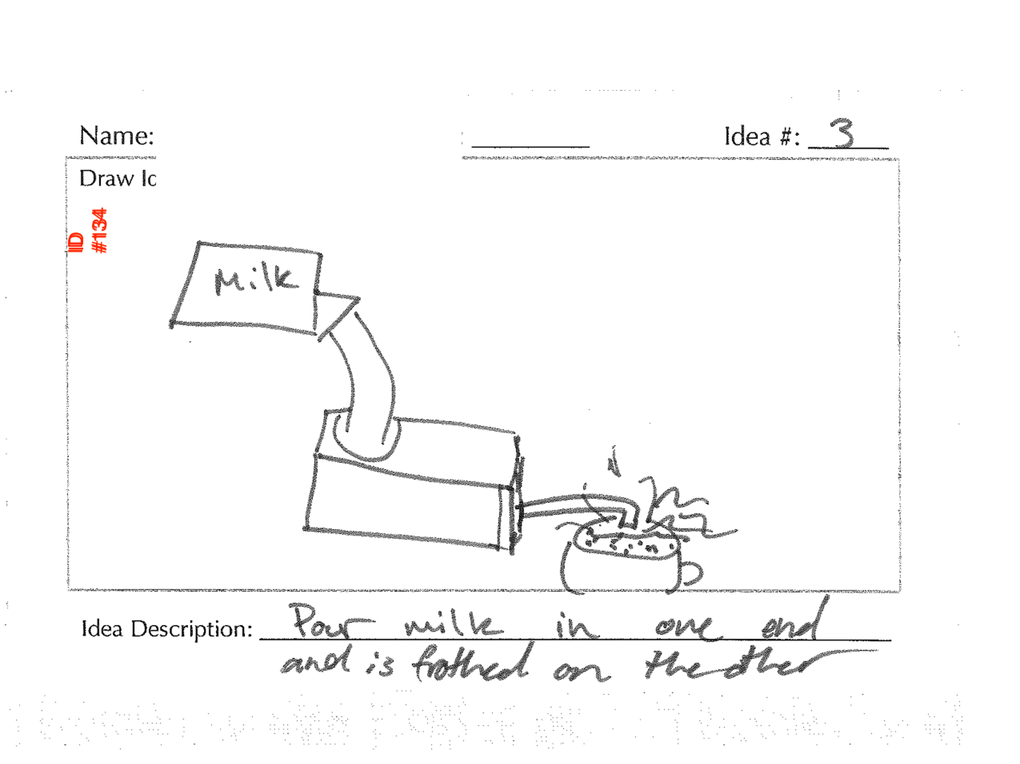 Name:
Idea #: 3
Draw Id
ID
#134
Milk
Idea Description: Pour milk in one end
and is frothed on the other